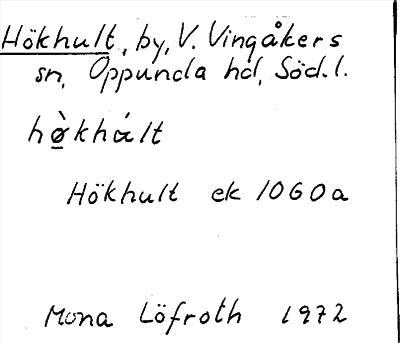 Hökhult, by, V. Vingåkers
sn, Oppunda hd, Söd.l.
hø̀khált
Hökhult ek 10G0a
Mona Löfroth 1972